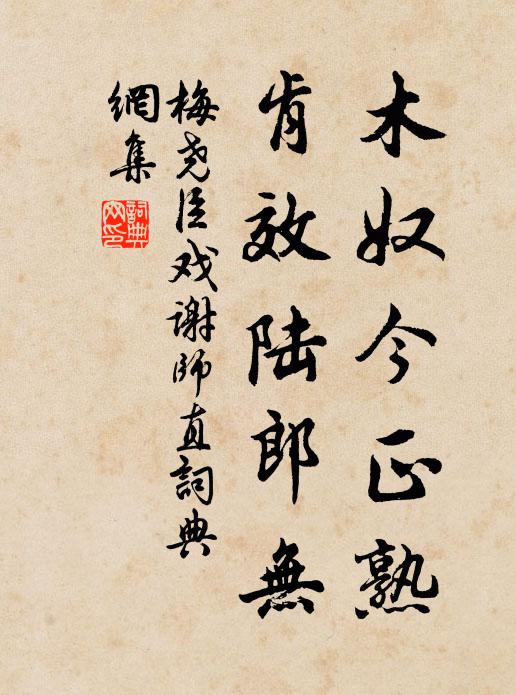 木奴今正熟
肯效陆郎無
梅尧臣戏谢师直詞典
網集
詞典
网印